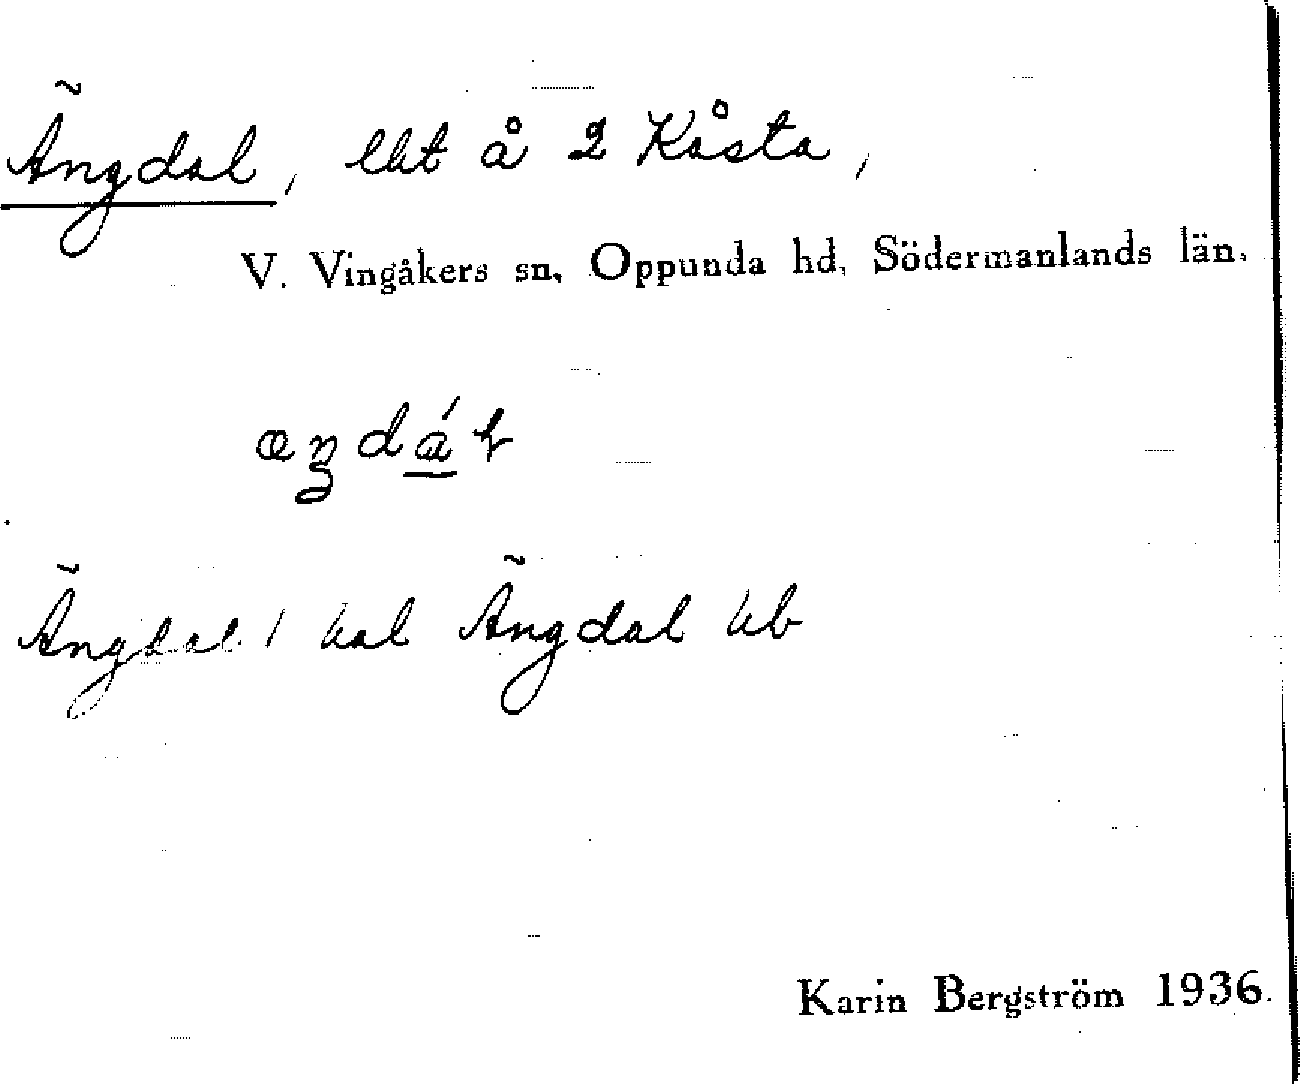 Ängdal, lht å 2 Kåsta,
V. Vingåkers sn, Oppunda hd, Södermanlands län.
æŋdál
Ängdal / kal Ängdal hb
Karin Bergström 1936.